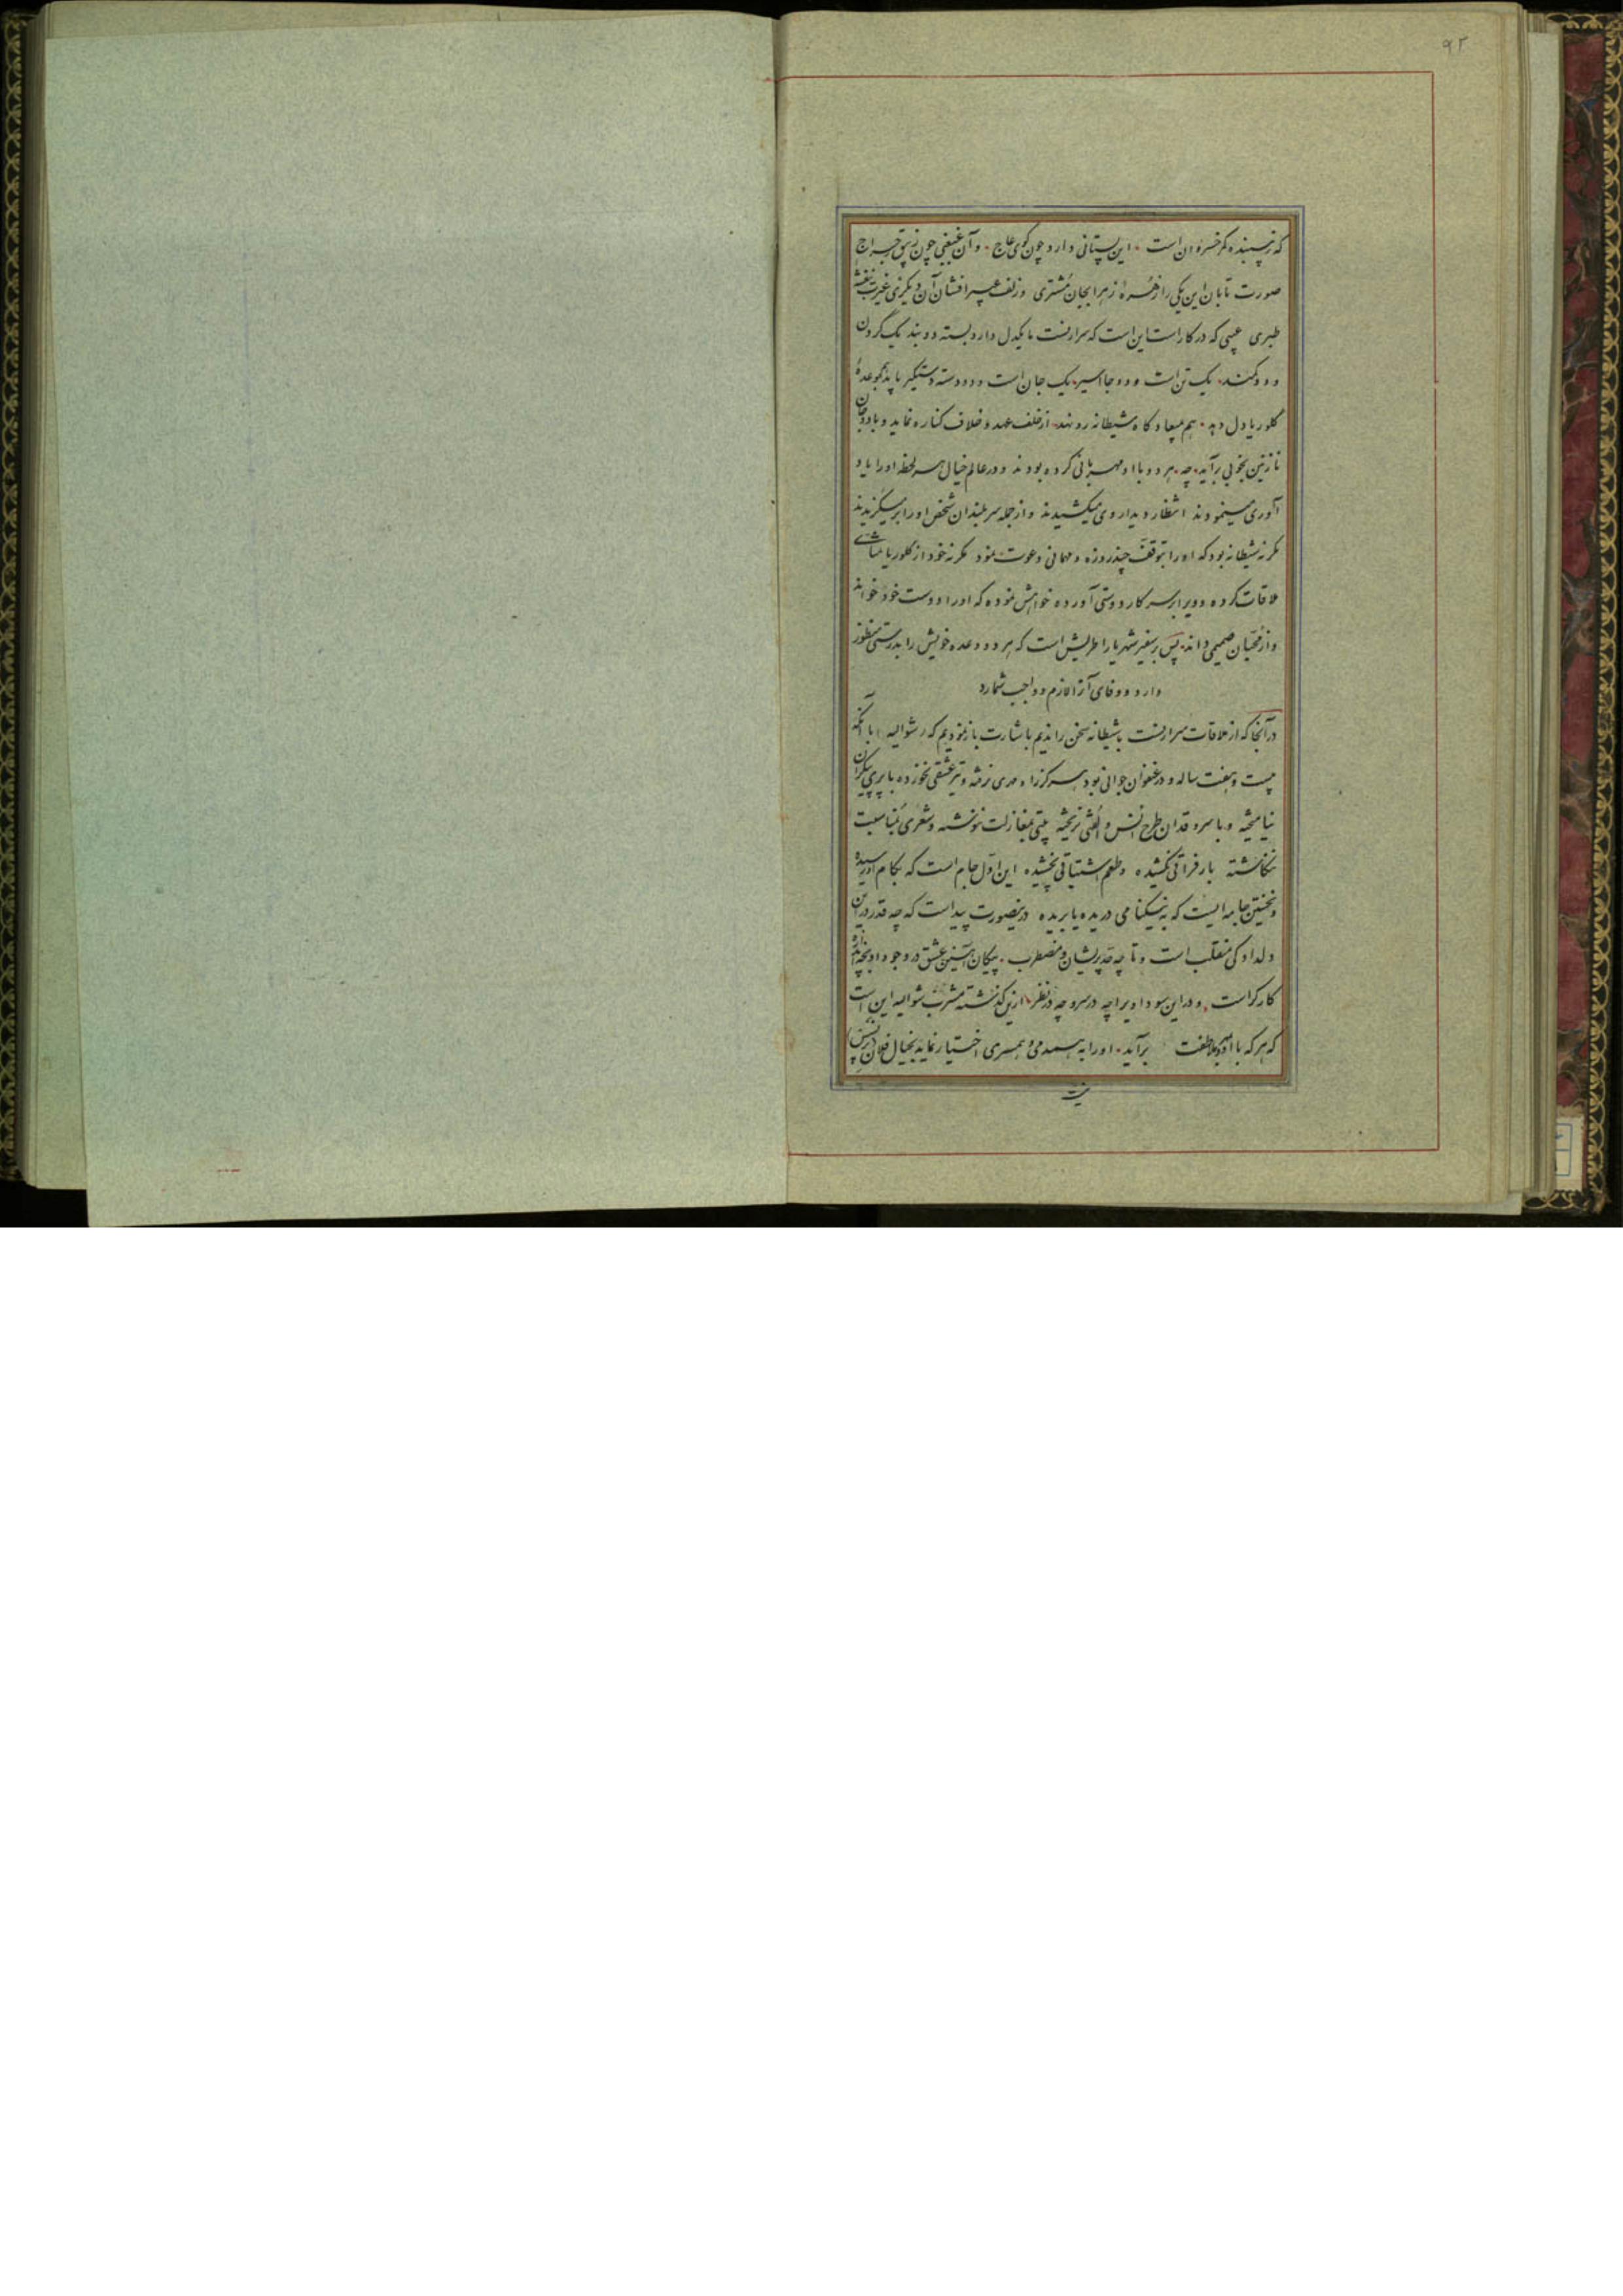 ۹۲
که زیبنده کمر خسروان است این پستانی دارد چون گوی عاج و آن غبغبی چون زیبق رجراج
صورت تابان این یکی را زهره زهرا بجان مشتری و زلف عبیر افشان آن دیگری غیرت بنفشه
طبری عیبی که در کار است این است که سرارنست یکدل دارد بسته دو بند یک گردن
و دو کمند یک تن است و دو جا اسیر یک جان است و دو دسته دستگیر باید بموعده
کلوریا دل دهد هم بمیعادگاه شیطانه رو نهد از خلف عهد و خلاف کناره نماید و با دو جان
نازنین بخوبی برآید چه هر دو با او مهربانی کرده بودند و در عالم خیال هر لحظه او را یاد
آوری مینمودند انتظار دیدار وی میکشیدند و از جمله سربلندان شخص او را بر میگزیدند
مگر نه شیطانه بود که او را بتوقف چند روزه و مهمانی دعوت نمود مگر نه خود از کلوریا
ملاقات کرده و ویرا بر سر کار دوستی آورده خواهش نموده که او را دوست خود خواند
و از محبان صمیمی داند پس بر سفیر شهریار اطریش است که هر دو وعده خویش را بدرستی منظور
دارد و وفای آنرا لازم و واجب شمارد
در آنجا که از ملاقات سرارنست با شیطانه سخن راندیم باشارت باز نمودیم که شوالیه با آنکه
بیست و هفت ساله و در عنفوان جوانی بود هرگز راه مهری نرفته و تیر عشقی نخورده با پری پیکران
نیامیخته و با سرو قدان طرح انس و الفتی نریخته بیتی بمغازلت ننوشته و شعری بمناسبت
ننگاشته بار فراقی نکشیده و طعم اشتیاقی نچشیده این اول جام است که بکام او رسیده
و نخستین جامه ایست که به نیکنامی دریده یا بریده درینصورت پیداست که چه قدر در این
دلدادگی منقلب است و تا چه حد پریشان و مضطرب پیکان آهنین عشق در وجود او بچه اندازه
کارگر است و در این سودا ویرا چه در سر و چه در نظر ازین گذشته مشرب شوالیه این است
که هر که با او بملاطفت برآید او را به همدمی و همسری اختیار نماید بخیال فلان پرنسس
نیست